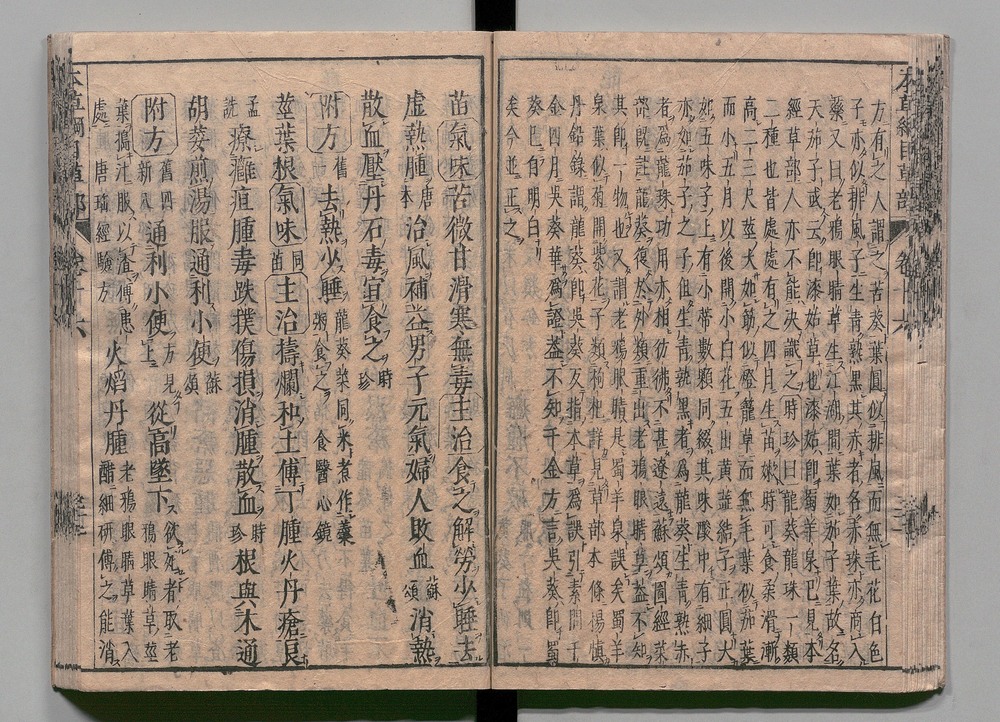 方有之人謂之苦葵葉圓似排風而無毛花白色
子亦似排風子生青熟黑其赤者名赤珠亦可入
藥又曰老鴉眼睛草生江湖間葉如茄子葉故名
天茄子或云即漆姑草也漆姑即蜀羊泉已見本
經草部人亦不能決識之時珍曰龍葵龍珠一類
二種也皆處處有之四月生苗嫩時可食柔滑漸
高二三尺莖大如筯似燈籠草而無毛葉似茄葉
而小五月以後開小白花五出黃蕊結子正圓大
如五味子上有小蒂數顆同綴其味酸中有細子
亦如茄子之子但生青熟黑者為龍葵生青熟赤
者為龍珠功用亦相彷彿不甚遼遠蘇頌圖經菜
部既註龍葵復於外類重出老鴉眼睛草蓋不知
其即一物也又謂老鴉眼睛是蜀羊泉誤矣蜀羊
泉葉似菊開紫花子類枸杞詳見草部本條揚慎
丹鉛錄謂龍葵即吳葵反指本草為誤引素問千
金四月吳葵華為證蓋不知千金方言吳葵即蜀
葵已自明白
矣今並正之
苗氣味苦微甘滑寒無毒主治食之解勞少睡去
虛熱腫唐本治風補益男子元氣婦人敗血蘇頌消熱
散血壓丹石毒宜食之時珍
附方舊一去熱少睡龍葵菜同米煮作羹粥食之食醫心鏡
莖葉根氣味同苗主治擣爛和土傅丁腫火丹瘡良
孟詵療癰疽腫毒跌撲傷損消腫散血時珍根與木通
胡荽煎湯服通利小便蘇頌
附方舊四新八通利小便方見上從高墜下欲死者取老鴉眼睛草莖
葉搗汁服以渣傅患處唐瑤經驗方火焰丹腫老鴉眼睛草葉入醋細研傅之能消
本草綱目草部
卷十六